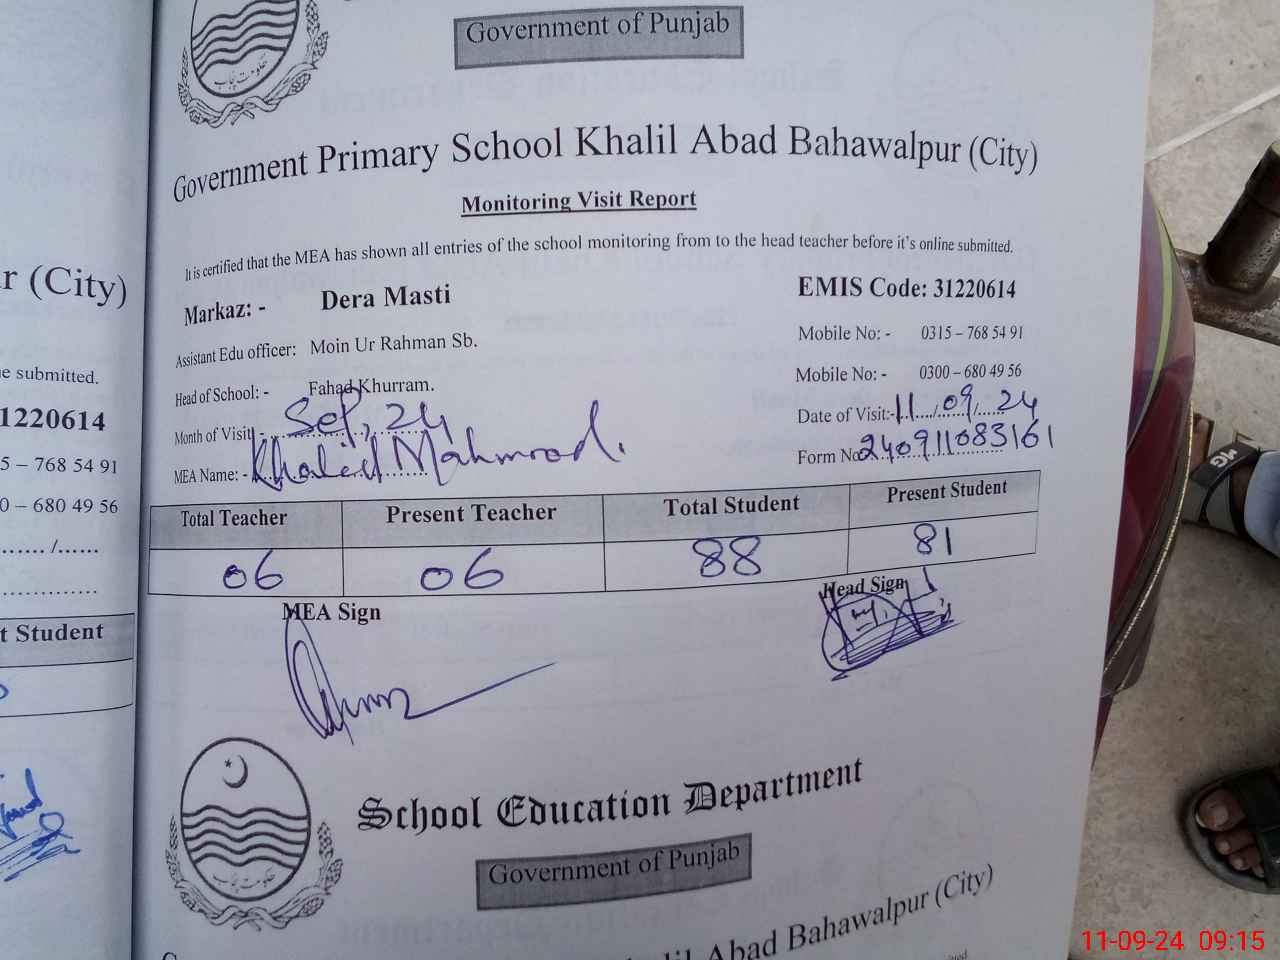 Government of Punjab
حکومت پنجاب
Government Primary School Khalil Abad Bahawalpur (City)
Monitoring Visit Report
It is certified that the MEA has shown all entries of the school monitoring from to the head teacher before it's online submitted.
Markaz: - Dera Masti EMIS Code: 31220614
Assistant Edu officer: Moin Ur Rahman Sb. Mobile No: - 0315 – 768 54 91
Head of School: - Fahad Khurram. Mobile No: - 0300 – 680 49 56
Month of Visit - Sep, 24 Date of Visit:- 11/09/24
MEA Name: - Khalid Mahmood. Form No 240911083161
Total Teacher Present Teacher Total Student Present Student
06 06 88 81
MEA Sign Head Sign
School Education Department
Government of Punjab
حکومت پنجاب
Abad Bahawalpur (City)
r (City)
e submitted.
1220614
5 – 768 54 91
0 – 680 49 56
....... /......
t Student
MG
11-09-24 09:15